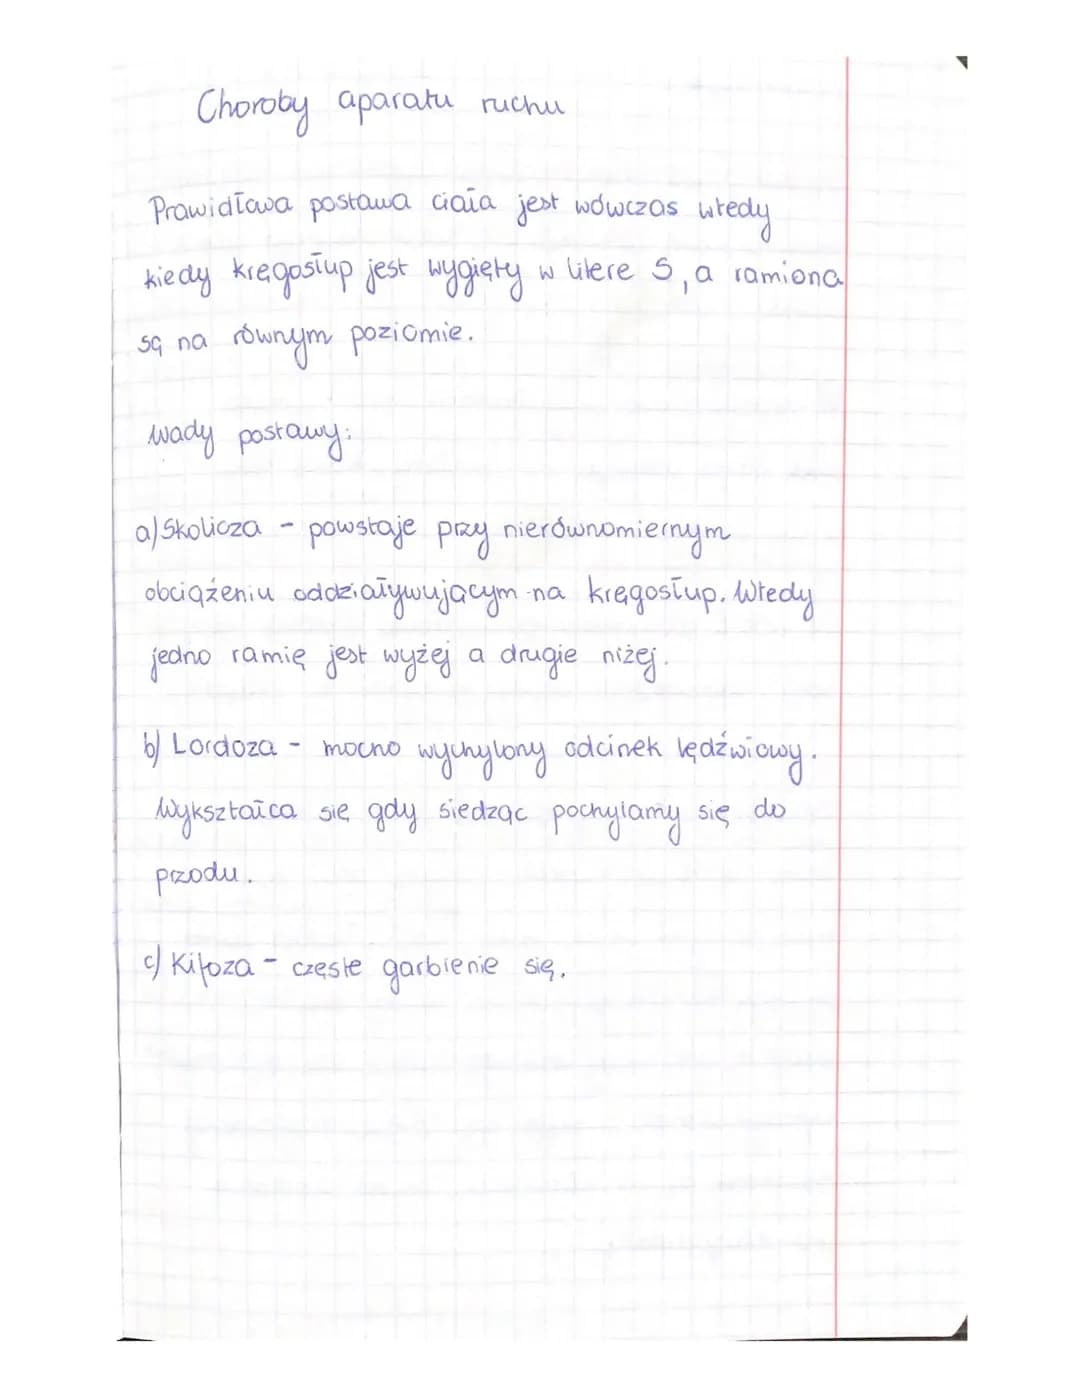 Choroby aparatu ruchu
Prawidłowa postawa ciała jest wówczas wtedy
kiedy kręgosłup jest wygięty w litere S, a ramiona
są na równym poziomie.
Wady postawy:
a) Skolioza - powstaje przy nierównomiernym
obciążeniu oddziaływującym na kręgosłup. Wtedy
jedno ramię jest wyżej a drugie niżej.
b) Lordoza - mocno wychylony odcinek lędźwiowy.
Wykształca się gdy siedząc pochylamy się do
przodu.
c) Kifoza - częste garbienie się.